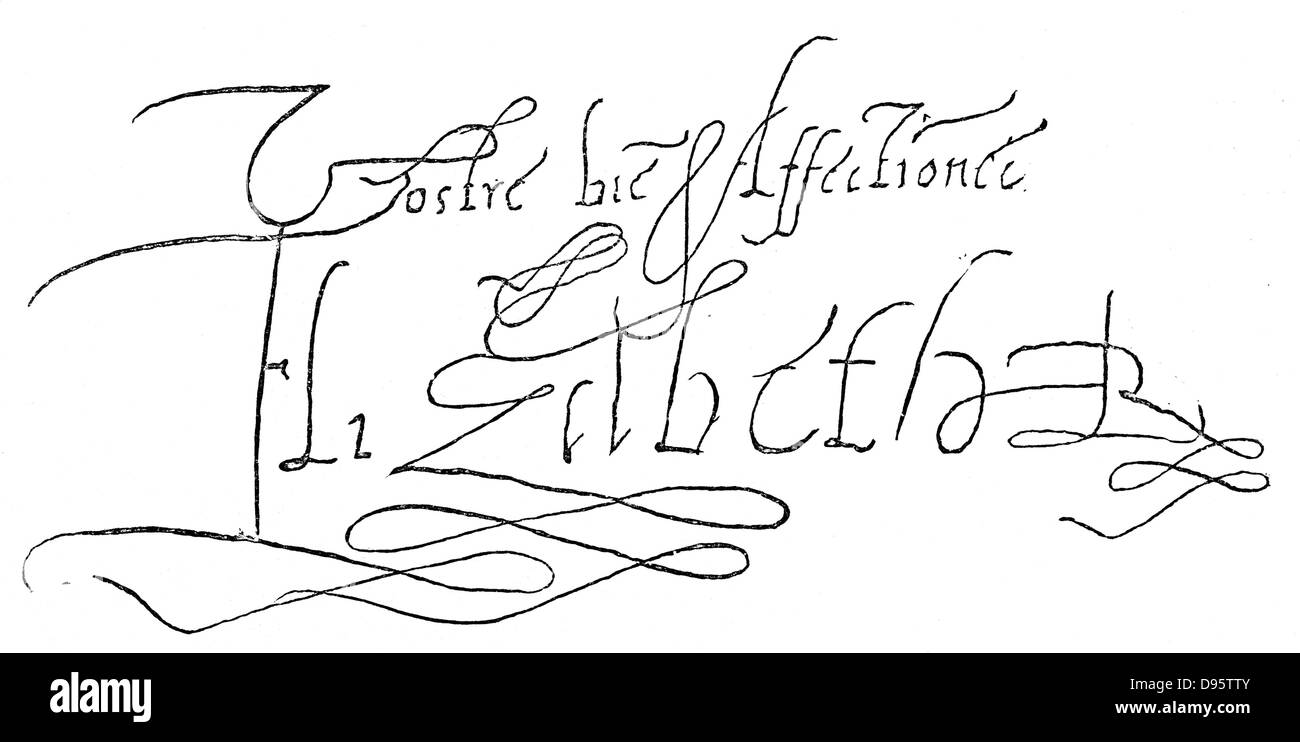 Vostre biē Affectionee
Elizabeth R
alamy
Image ID: D95TTY
www.alamy.com